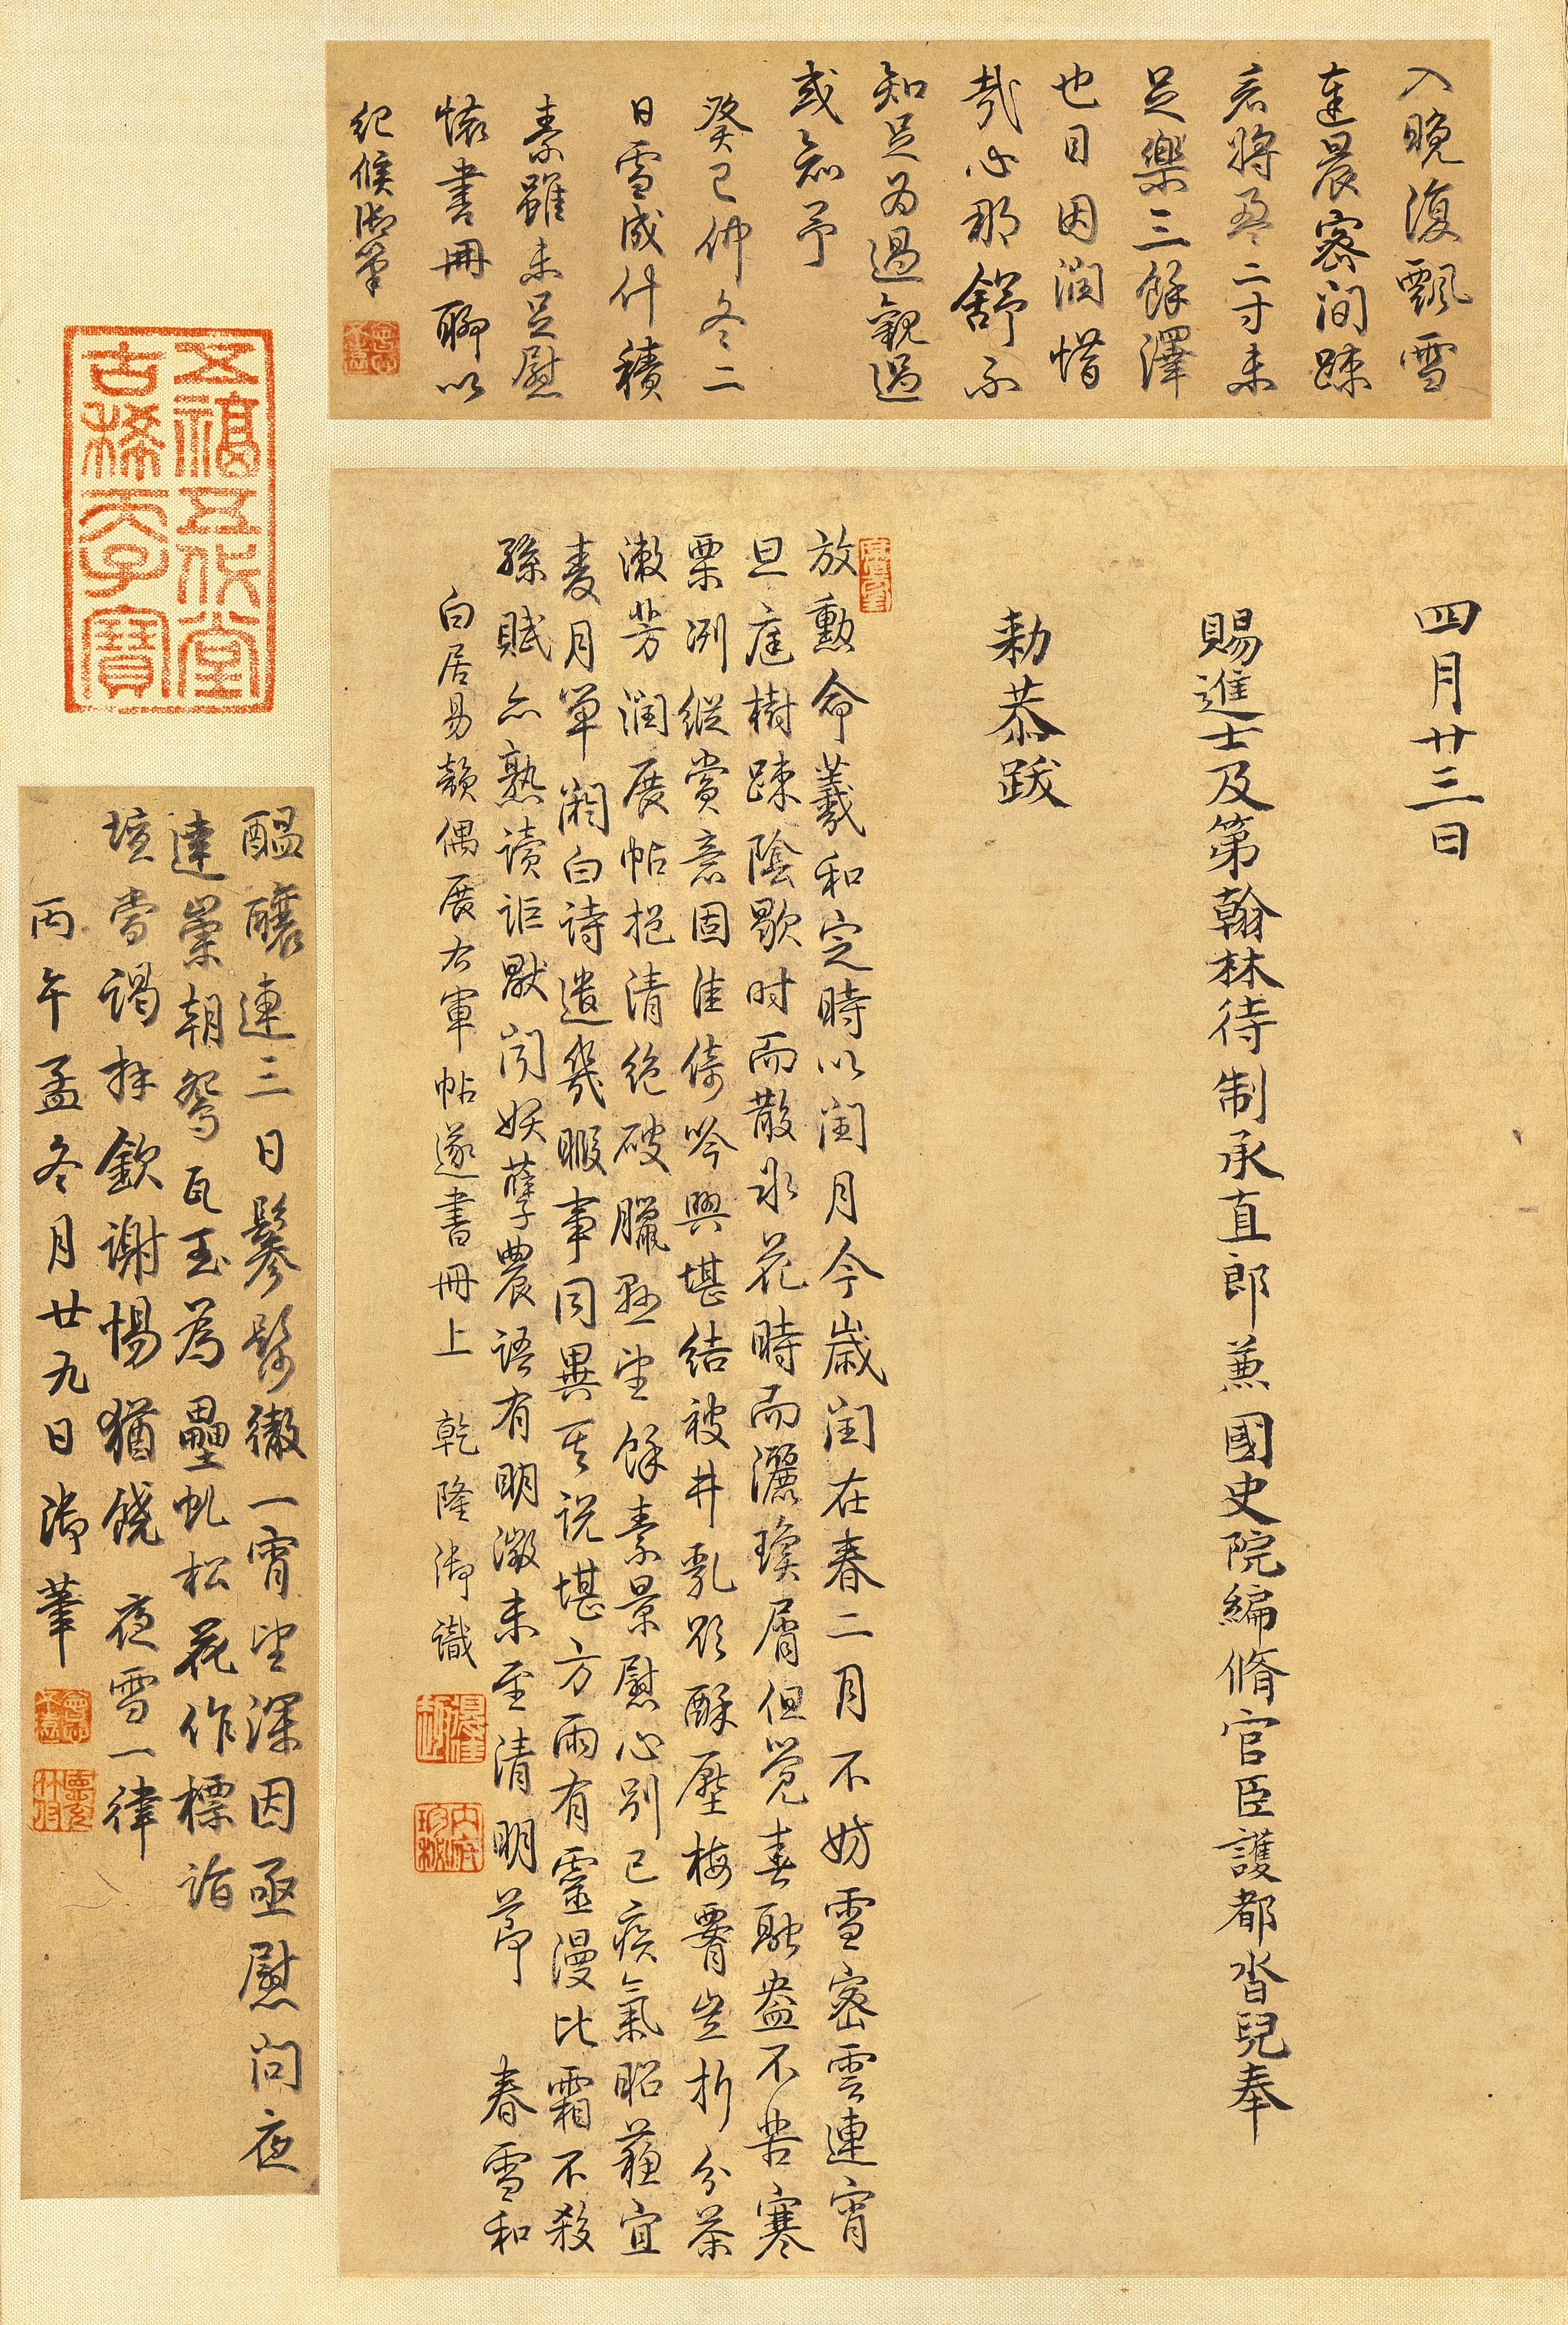 入晚復飄雪
達晨密間疎
言將盈二寸未
足樂三餘澤
也目因潤惜
哉心那舒不
知足為過觀過
或知予
癸巳仲冬二
日雪成什積
素雖未足慰
懷書冊聊以
紀候御筆
四月廿三日
賜進士及第翰林待制承直郎兼國史院編脩官臣護都沓兒奉
勅恭跋
放勲命羲和定時以閏月今歲閏在春二月不妨雪密雲連宵
旦庭樹踈陰歇时而散氷花時而灑瓊屑但覺春融盎不苦寒
栗冽縱賞意固佳倚吟興堪結被井乳欺酥壓梅霽豈折分茶
漱芳潤展帖挹清絕破臘正望餘素景慰心別已疾氣昭蘓宜
麥月單闕白詩遣幾暇事同異其说堪方雨有靈漫比霜不殺
孫賦亦熟讀詎厭閔妖孽農語有明澂未至清明莭 春雪和
白居易韻偶展右軍帖遂書冊上 乾隆御識
醞釀連三日鬖髿徹一宵望深因亟慰問夜
達崇朝鴛瓦玉為壘虬松花作標詣
壇當謁拜欽謝惕猶饒 夜雪一律
丙午孟冬月廿九日御筆
五福五代堂
古稀天子寶